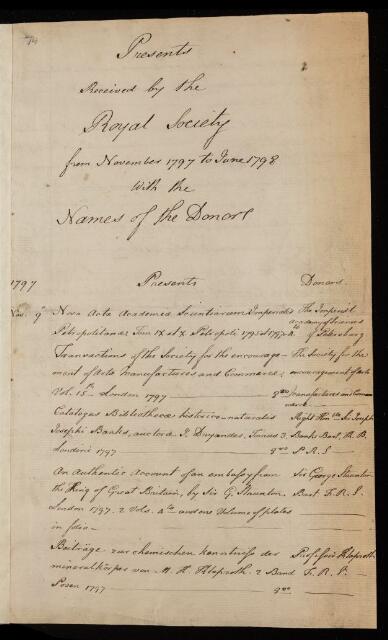 Presents
Received by the
Royal Society
from November 1797 to June 1798
With the
Names of the Donors
1797 Presents Donors
Nov. 9 Nova Acta Academiæ Scientiarum Imperialis The Imperial
Petropolitanæ Tom IX et X Petropoli 1795 et 1797 4to Academy of Sciences of Petersburg
Transactions of the Society for the encourage- The Society for the
ment of Arts Manufactures and Commerce, encouragement of Arts
Vol. 15th London 1797 8vo Manufactures and Commerce
Catalogus Bibliothecæ historico-naturalis Right Honble Sir Joseph
Josephi Banks, auctore J. Dryander, Tomus 3 Banks Bart. K.B.
Londini 1797 8vo P.R.S.
An Authentic Account of an embassy from Sir George Staunton
the King of Great Britain, by Sir G. Staunton Bart. F.R.S.
London 1797. 2 Vols. 4to and one Volume of plates
in folio
Beiträge zur chemischen kenntniss der Professor Klaproth
mineralkörper von M. H. Klaproth. 2 Band F.R.S.
Posen 1797 8vo